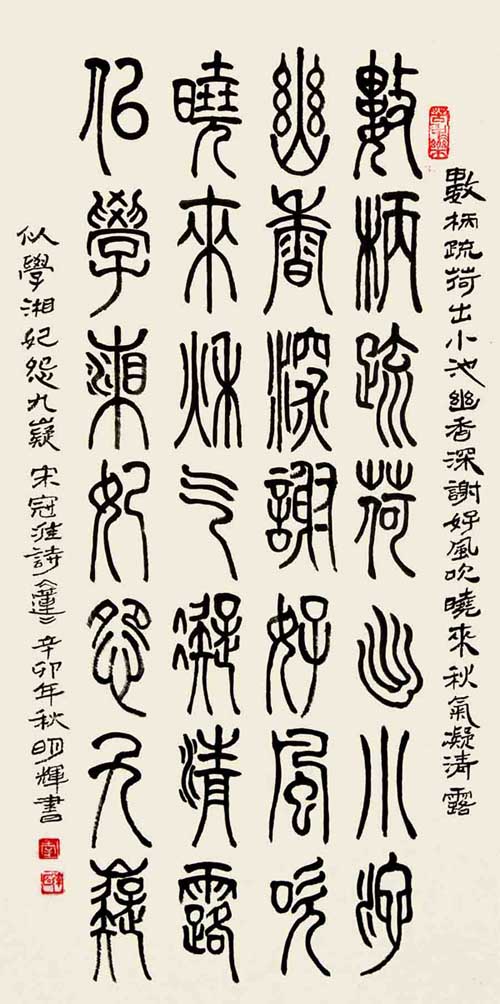 數柄疏荷出小池幽香深謝好風吹曉來秋氣凝清露
數柄疏荷出小池
幽香深謝好風吹
曉來秋气凝清露
佀學湘妃怨九嶷
似學湘妃怨九嶷 宋寇准詩《蓮》辛卯年秋明輝書